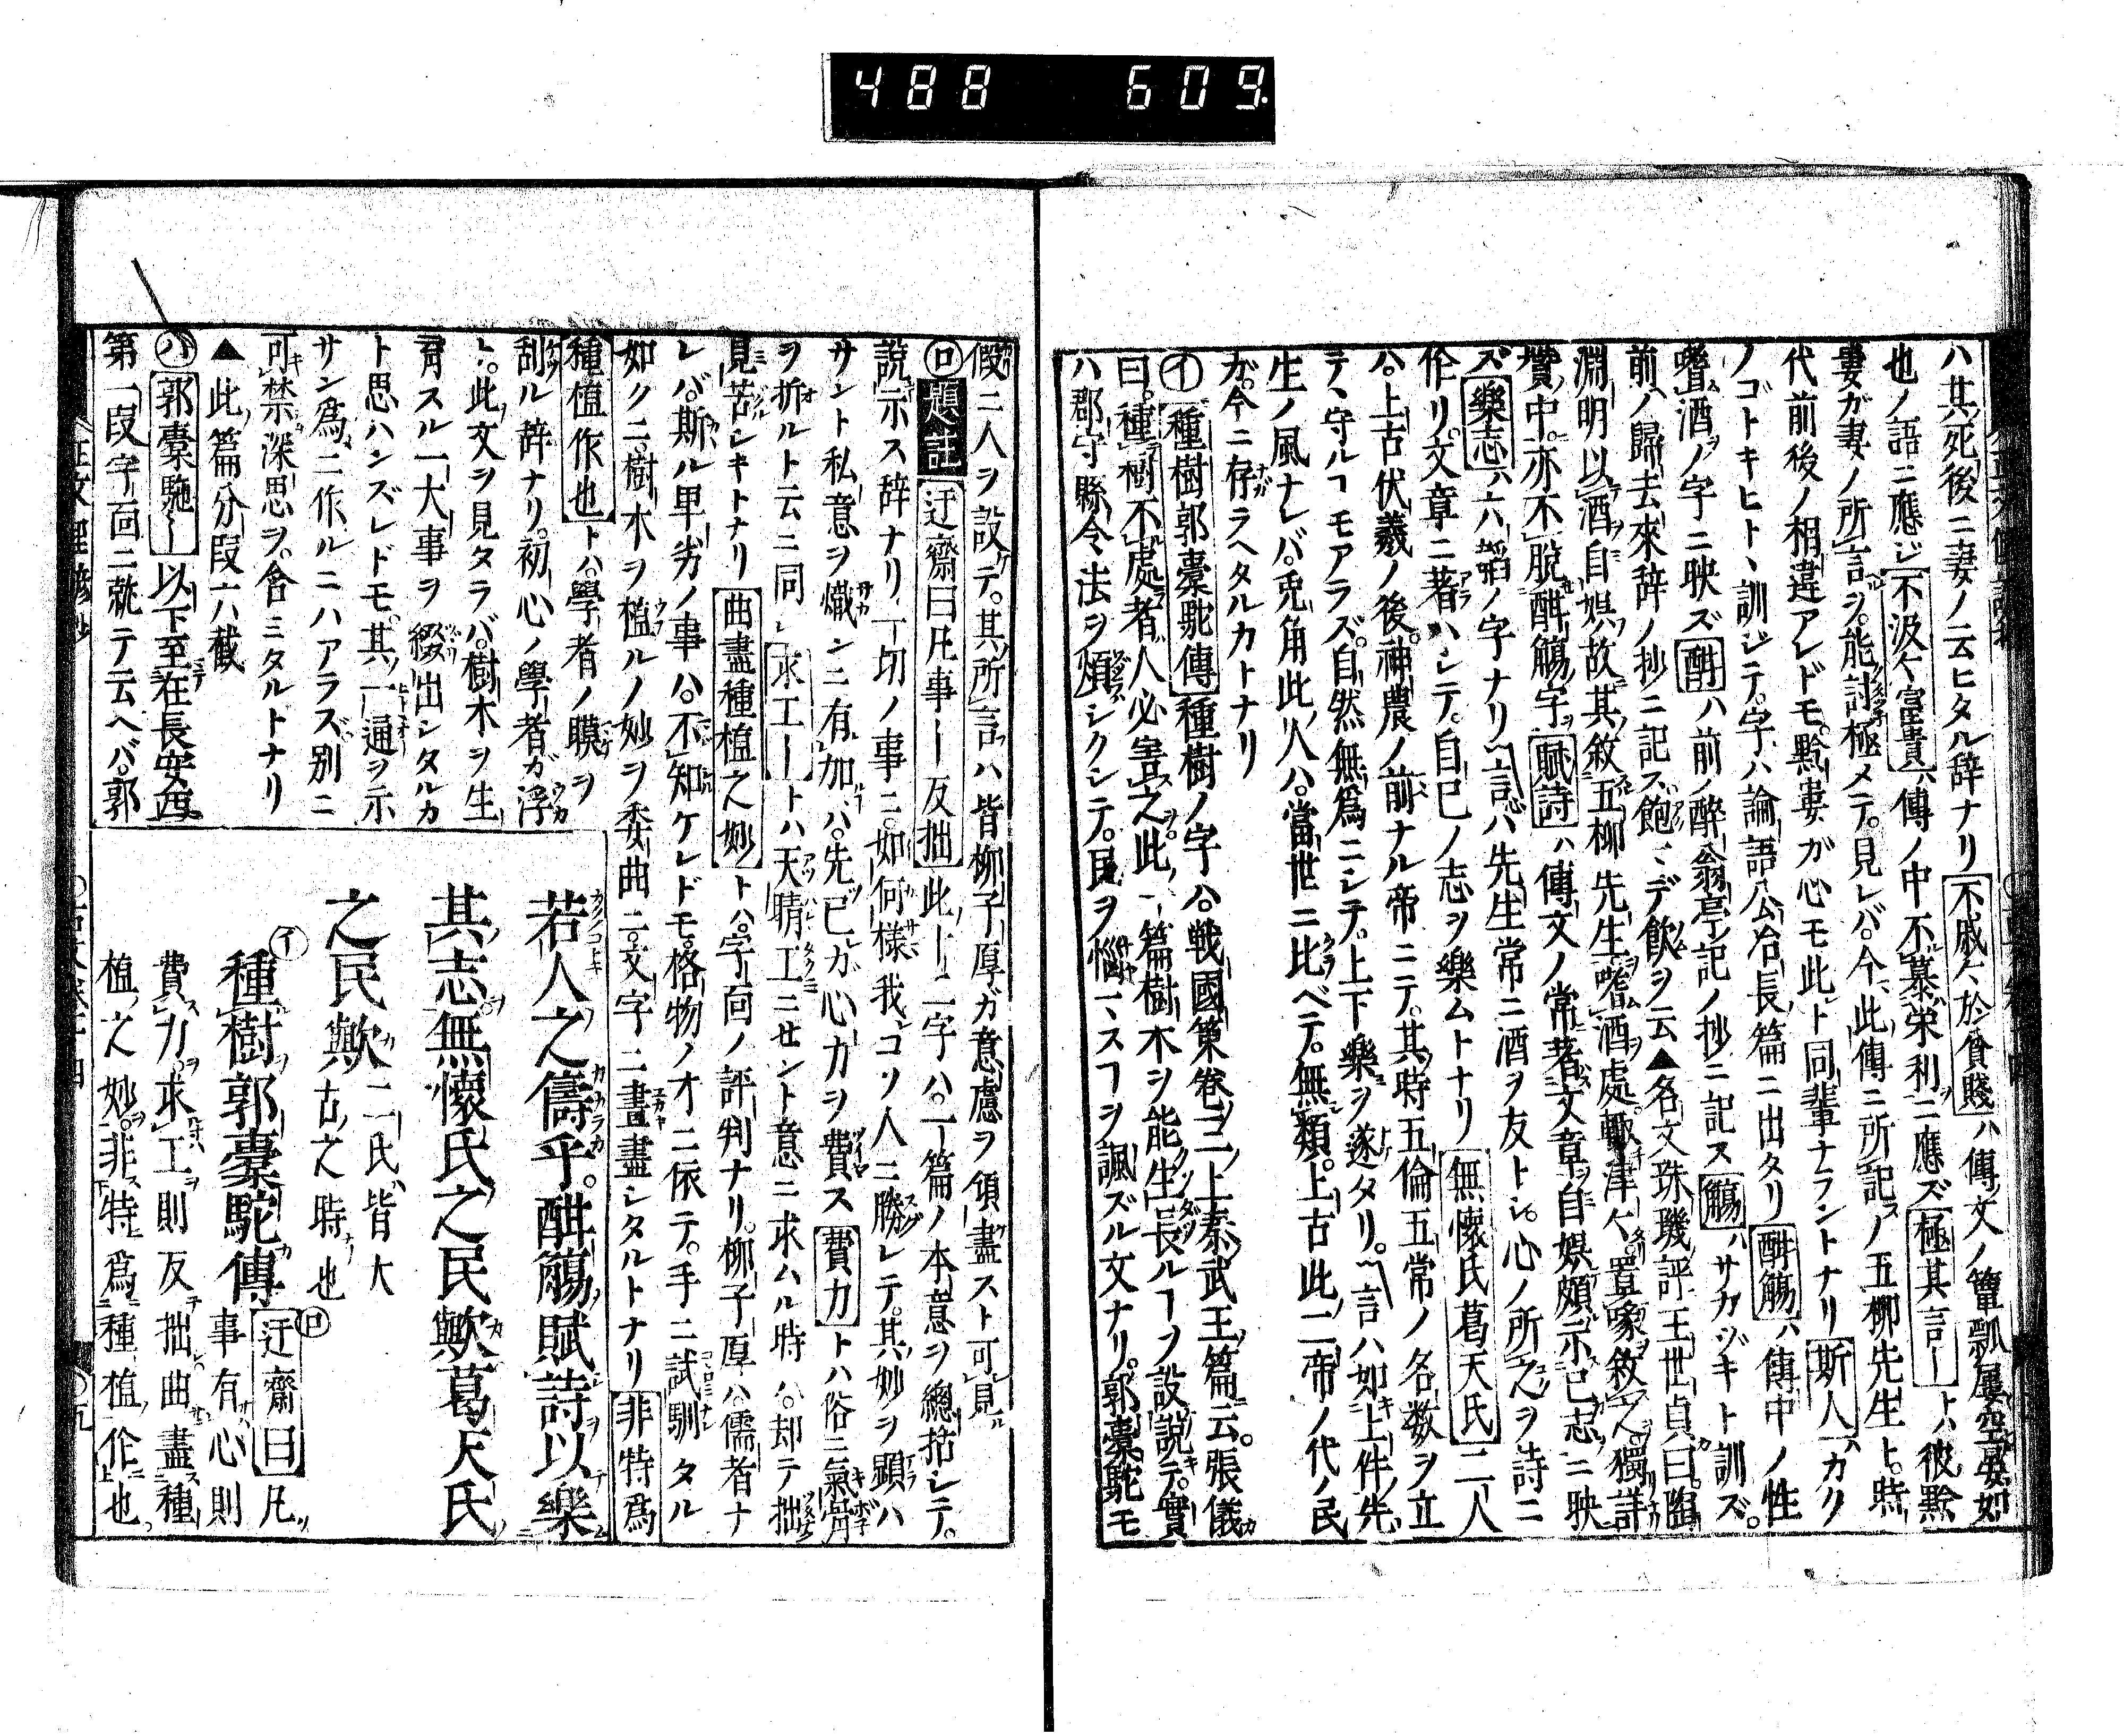 488 609.
ハ其死後ニ妻ノ云ヒタル辞ナリ不戚々於貧賤ハ傳文ノ簞瓢屢空晏如
也ノ語ニ應ジ不汲々富貴ハ傳ノ中不慕栄利ニ應ズ極其言ートハ彼黔
婁ガ妻ノ所言ヲ能討極メテ見レバ今此傳ニ所記ノ五柳先生ト時
代前後ノ相違アレドモ黔婁ガ心モ此ト同輩ナラントナリ斯人ハカク
ノゴトキヒトヽ訓ジテ字ハ論語公冶長篇ニ出タリ酣觴ハ傳中ノ性
嗜酒ノ字ニ映ズ酣ハ前ノ醉翁亭記ノ抄ニ記ス觴ハサカヅキト訓ズ
前ノ歸去來辞ノ抄ニ記ス飽ミデ飲ヲ云▲各文珠璣評王世貞曰陶
淵明以酒自娯故其敘五柳先生嗜酒處輒津々置喙敘之獨詳
賛中亦不脱酣觴字賦詩ハ傳文ノ常著文章自娯頗示己志ニ映
ズ樂志ハ六韜ノ字ナリ言ハ先生常ニ酒ヲ友トシ心ノ所之ヲ詩ニ
作リ文章ニ著ハシテ自己ノ志ヲ樂ムトナリ無懷氏葛天氏二人
ハ上古伏羲ノ後神農ノ前ナル帝ニテ其時五倫五常ノ名数ヲ立
テヽ守ルヿモアラズ自然無爲ニシテ上下樂ヲ遂タリ言ハ如上件先
生ノ風ナレバ兎角此人ハ當世ニ比ベテ無類上古此二帝ノ代ノ民
ガ今ニ存ラヘタルカトナリ
イ種樹郭橐駝傳種樹ノ字ハ戦國策巻二上秦武王篇云張儀
曰種樹不處者人必害之此一篇樹木ヲ能生長ルヿヲ設説テ實
ハ郡守縣令法ヲ煩シクシテ民ヲ惱マスヿヲ諷ズル文ナリ郭橐駝モ
假ニ人ヲ設テ其所言ハ皆柳子厚ガ意慮ヲ傾盡スト可見
ロ題註迂齋曰凡事ー反拙此ー二字ハ一篇ノ本意ヲ總括シテ
説示ス辞ナリ一切ノ事ニ如何樣我コソ人ニ勝レテ其妙ヲ顕ハ
サント私意ヲ熾ンニ有加ハ先己ガ心力ヲ費ス費力トハ俗ニ氣骨
ヲ折ルト云ニ同シ求工ートハ天晴工ニセント意ニ求ムル時ハ却テ拙
見苦シキトナリ曲盡種植之妙トハ字面ノ評判ナリ柳子厚ハ儒者ナ
レバ斯ル卑劣ノ事ハ不知ケレドモ格物ノ才ニ依テ手ニ試馴タル
如クニ樹木ヲ植ルノ妙ヲ委曲ニ文字ニ書盡シタルトナリ非特爲
種植作也トハ學者ノ瞙ヲ
刮ル辞ナリ初心ノ學者ガ浮
ト此文ヲ見タラバ樹木ヲ生
育スル一大事ヲ綴出シタルカ
ト思ハンズレドモ其一通ヲ示
サン爲ニ作ルニハアラズ別ニ
可禁深思ヲ含ミタルトナリ
▲此篇分段六截
ハ郭橐駞ー以下至在長安西
第一段字面ニ就テ云ヘバ郭
若人之儔乎酣觴賦詩以樂
其志無懷氏之民歟葛天氏
之民歟二氏皆大古之時也
イ種樹郭橐駝傳ロ迂齋曰凡事有心則
費力求工則反拙曲盡種
植之妙非特爲種植作也